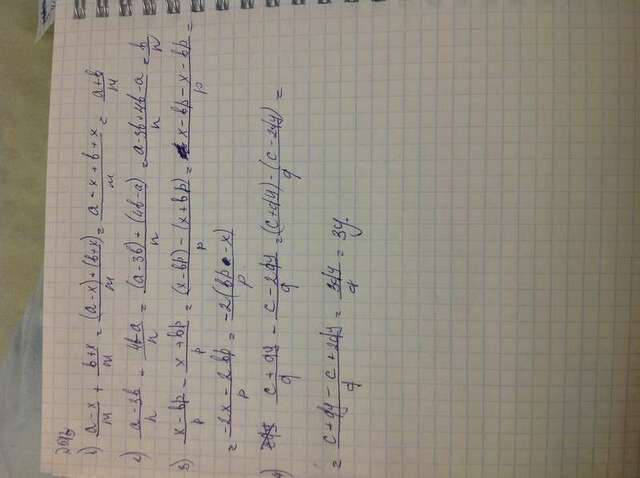 1) (a-x)/m + (b+x)/m = ((a-x)+(b+x))/m = (a-x+b+x)/m = (a+b)/m
2) (a-3b)/n + (4b-a)/n = ((a-3b)+(4b-a))/n = (a-3b+4b-a)/n = b/n
3) (x-bp)/p - (x+bp)/p = ((x-bp)-(x+bp))/p = (x-bp-x-bp)/p =
= (-2x-2bp)/p = (-2(bp-x))/p
4) (c+qy)/q - (c-2qy)/q = ((c+qy)-(c-2qy))/q =
= (c+qy-c+2qy)/q = 3qy/q = 3y